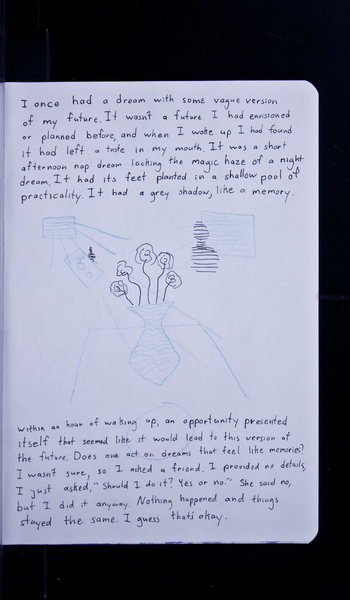 I once had a dream with some vague version
of my future. It wasn't a future I had envisioned
or planned before, and when I woke up I had found
it had left a taste in my mouth. It was a short
afternoon nap dream lacking the magic haze of a night
dream. It had its feet planted in a shallow pool of
practicality. It had a grey shadow, like a memory.
Within an hour of waking up, an opportunity presented
itself that seemed like it would lead to this version of
the future. Does one act on dreams that feel like memories?
I wasn't sure, so I asked a friend. I provided no details,
I just asked, "Should I do it? Yes or no." She said no,
but I did it anyway. Nothing happened and things
stayed the same. I guess that's okay.